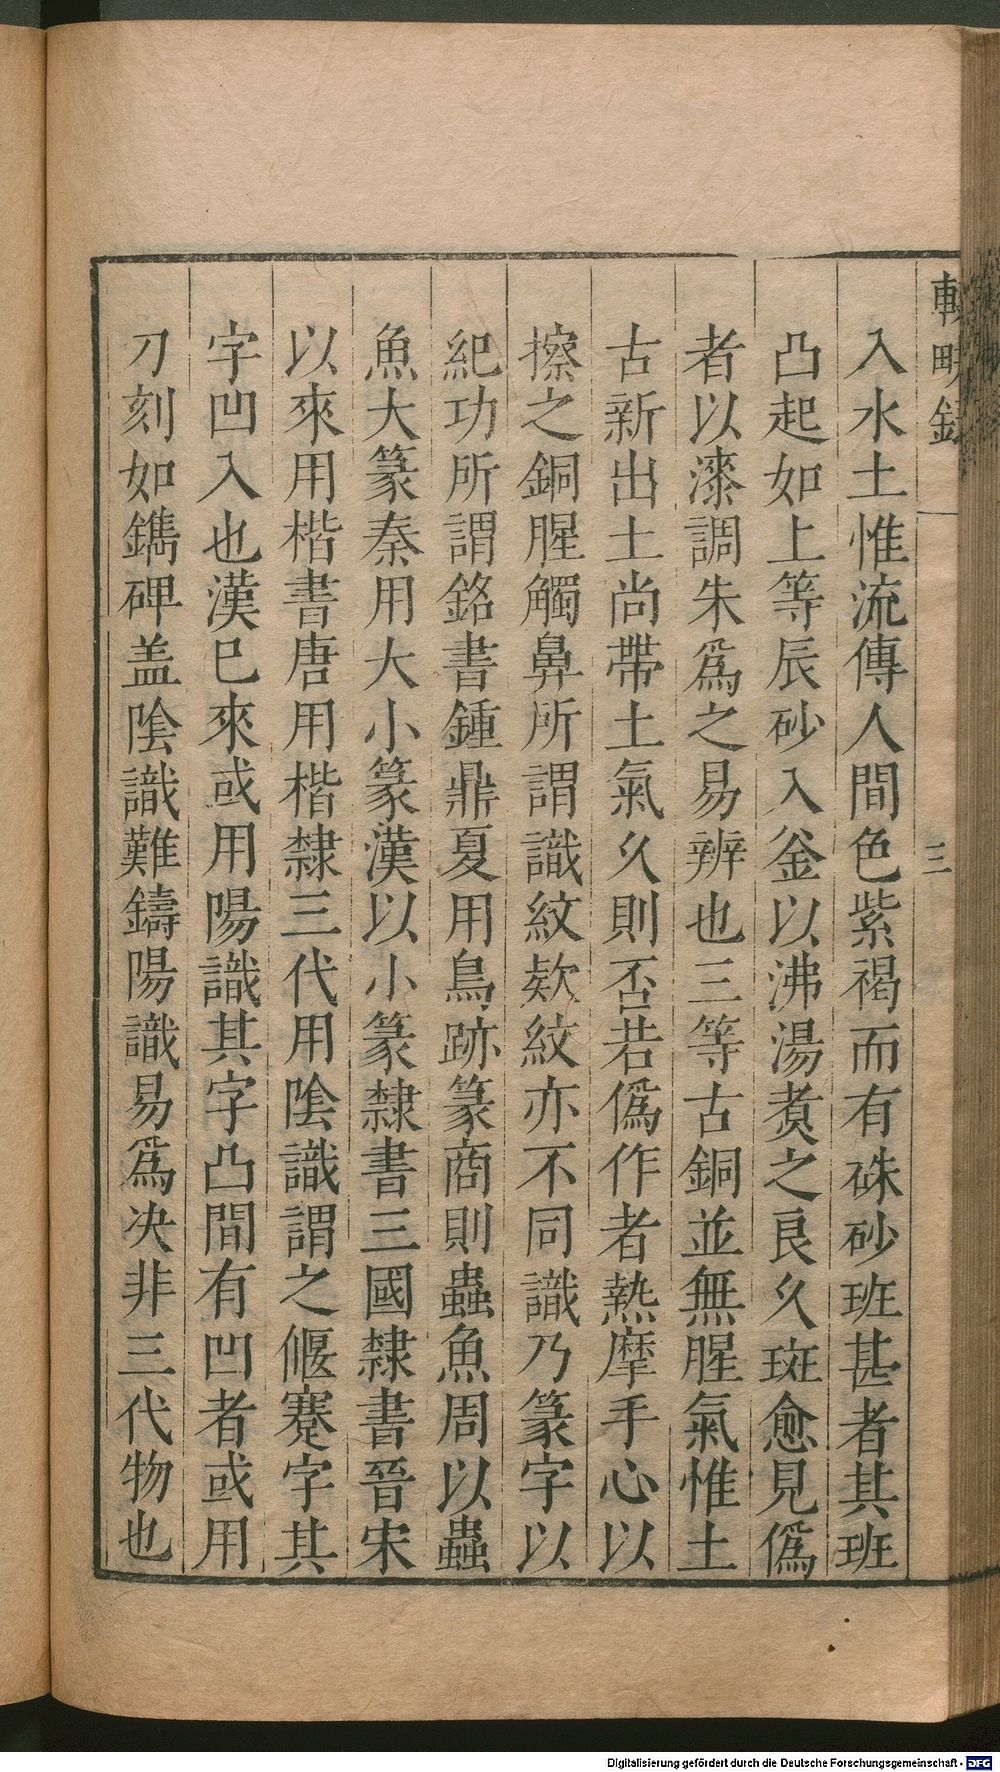 輟畊錄
三
入水土惟流傳人間色紫褐而有硃砂班甚者其班
凸起如上等辰砂入釜以沸湯煑之良久斑愈見僞
者以漆調朱爲之易辨也三等古銅並無腥氣惟土
古新出土尚帶土氣久則否若僞作者熱摩手心以
擦之銅腥觸鼻所謂識紋欵紋亦不同識乃篆字以
紀功所謂銘書鍾鼎夏用鳥跡篆商則蟲魚周以蟲
魚大篆秦用大小篆漢以小篆隸書三國隸書晉宋
以來用楷書唐用楷隸三代用陰識謂之偃蹇字其
字凹入也漢巳來或用陽識其字凸間有凹者或用
刀刻如鐫碑盖陰識難鑄陽識易爲决非三代物也
Digitalisierung gefördert durch die Deutsche Forschungsgemeinschaft - DFG